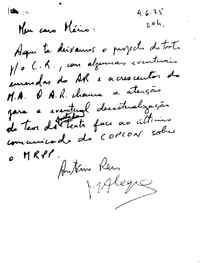 4.6.75
20h.
Meu caro Mário:
Aqui te deixamos o projecto de texto
p/ o C.R., com algumas eventuais
emendas do AR e acrescentos do
M.A. O A.R. chama a atenção
para a eventual desactualização
do teor do texto face ao último
comunicado do COPCON sobre
o MRPP.
António Reis
M Alegre